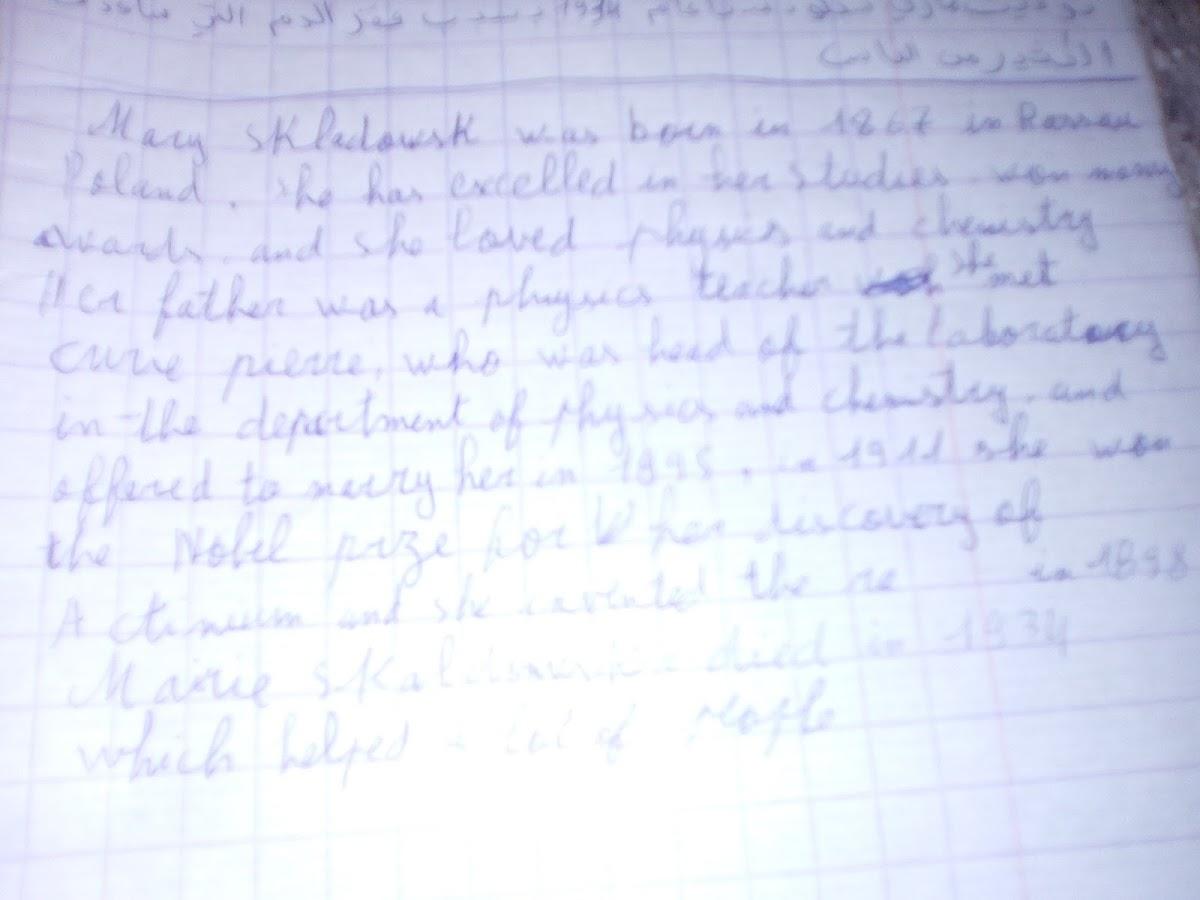 عام 1934 بسبب فقر الدم التي ساعدت
الكثير من الناس
Mary Skladowsk was born in 1867 in
Poland. She has excelled in her studies won many
awards and she loved physics and chemistry
Her father was a physics teacher she met
Curie pierre, who was head of the laboratory
in the department of physics and chemistry, and
offered to marry her in 1895. in 1911 she won
the Nobel prize for her discovery of
Actinium and she invented the re in 1898
Marie died in 1934
which helped a lot of people